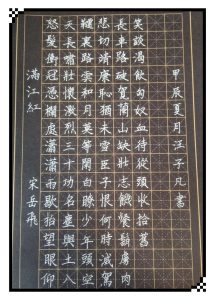 滿江紅 宋岳飛
怒髮衝冠憑欄處瀟瀟雨歇抬望眼仰
天長嘯壯懷激烈三十功名塵與土八
韆裏路雲和月莫等閒白瞭少年頭空
悲切靖康恥猶未雪臣子恨何時滅駕
長車踏破賀蘭山缺壯志饑餐鬍虜肉
笑談渴飲匈奴血待從頭收拾舊
甲辰夏月汪子凡書